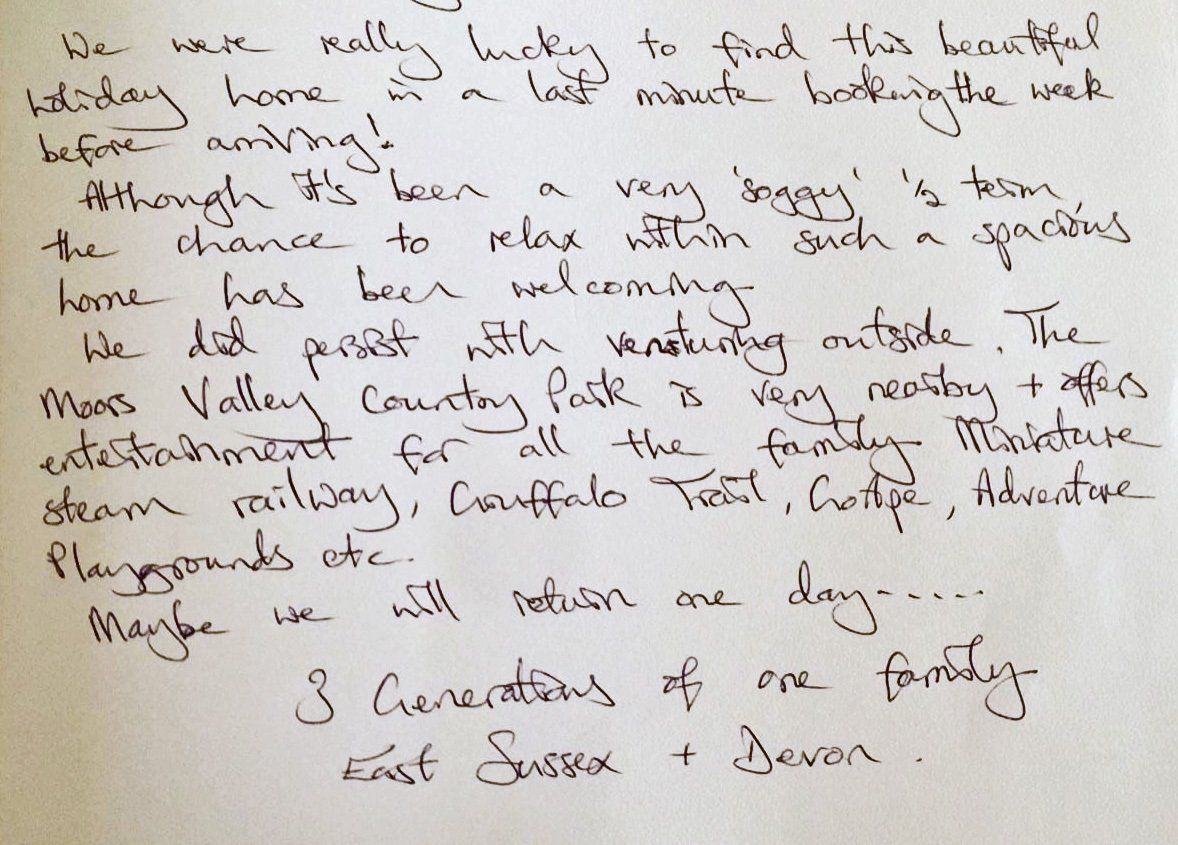 We were really lucky to find this beautiful
holiday home in a last minute booking the week
before arriving!
Although it's been a very 'soggy' ½ term,
the chance to relax within such a spacious
home has been welcoming
We did persist with venturing outside. The
Moors Valley Country Park is very nearby + offers
entertainment for all the family Miniature
steam railway, Gruffalo Trail, GoApe, Adventure
Playgrounds etc.
Maybe we will return one day-----
3 Generations of one family
East Sussex + Devon.